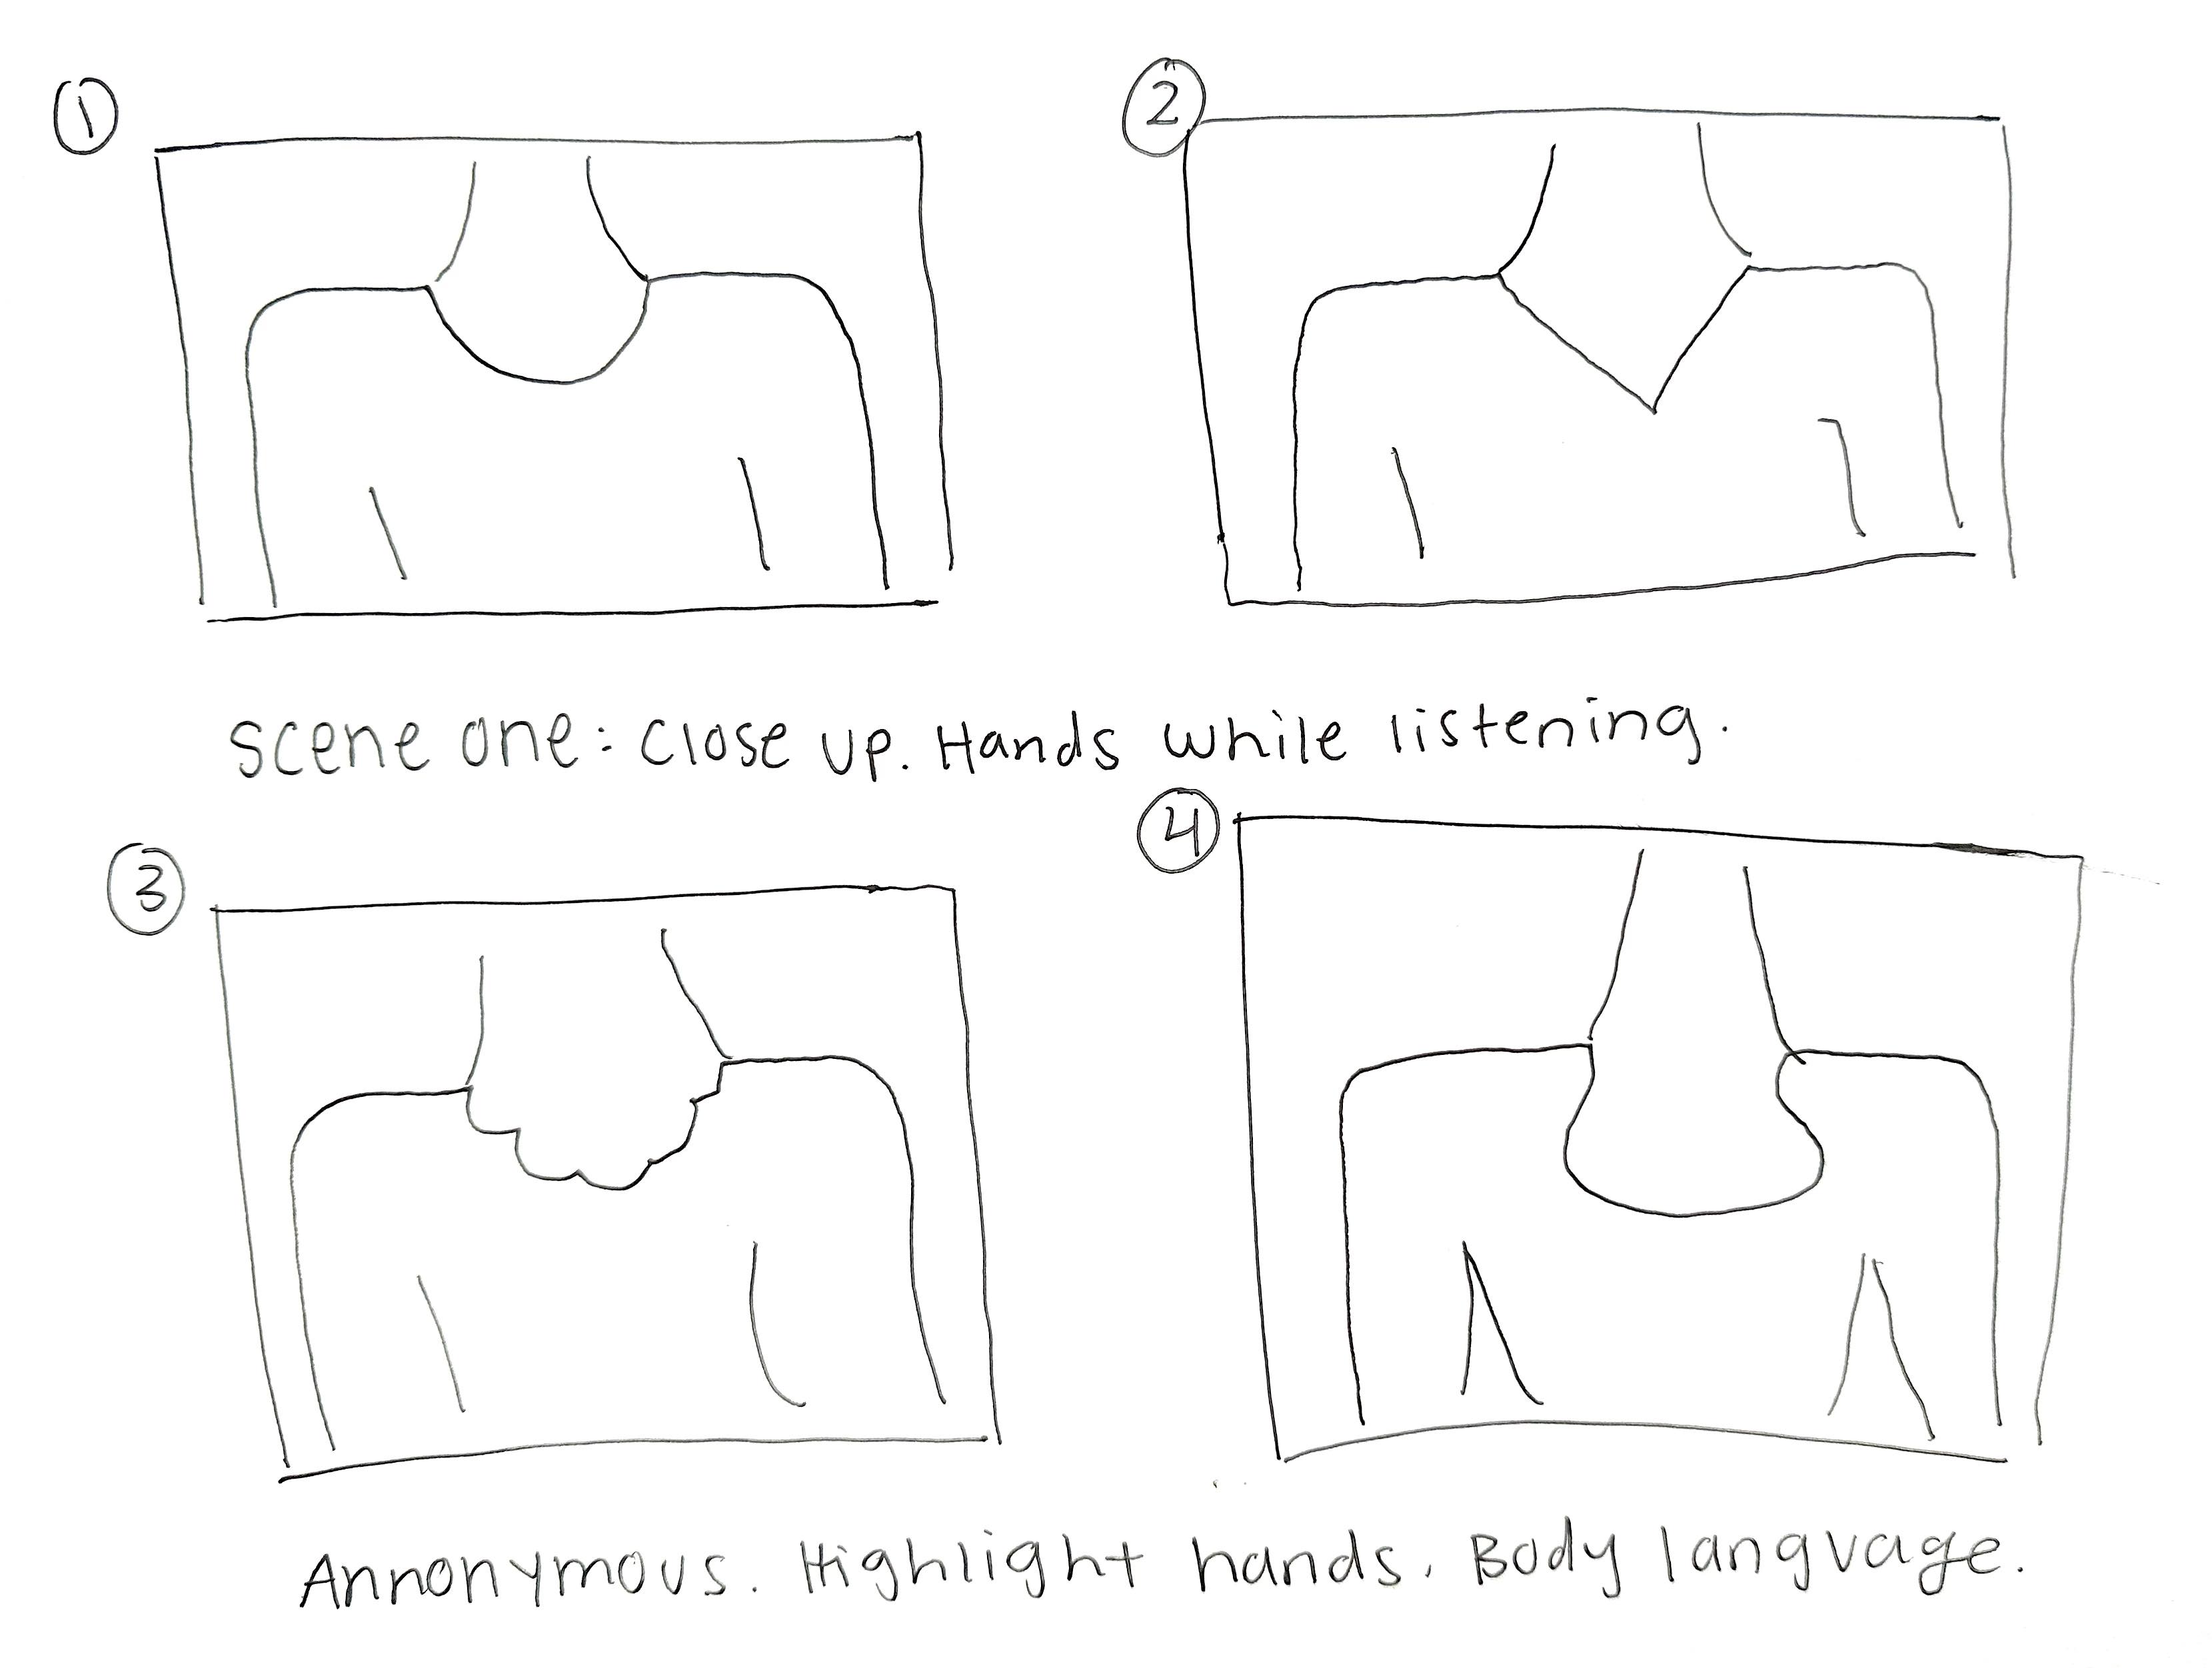 1
2
scene one: close up. Hands while listening.
3
4
Annonymous. Highlight hands. Body language.